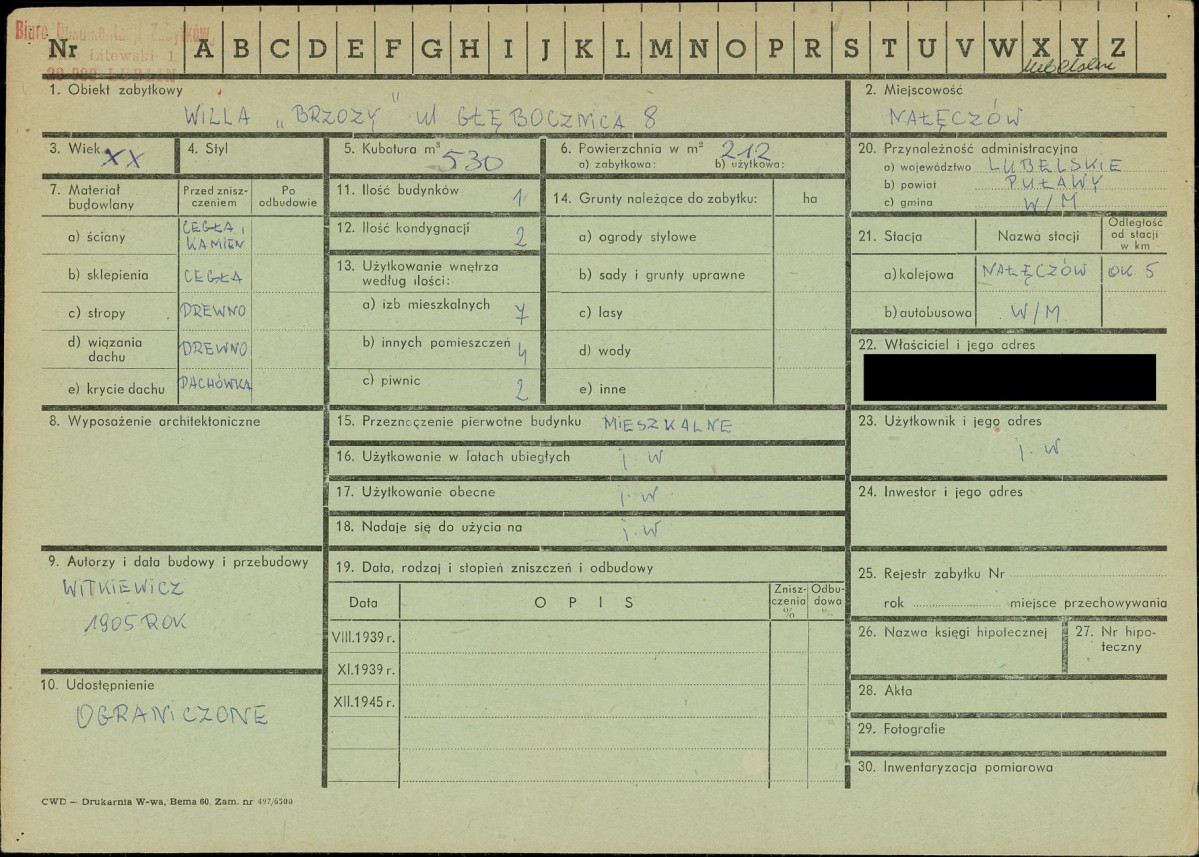 Nr A B C D E F G H I J K L M N O P R S T U V W X Y Z
Biuro Dokumentacji Zabytków
Litewski 1
LUBLIN
lubelskie
1. Obiekt zabytkowy
WILLA „BRZOZY” Ul GŁĘBOCZNICA 8
2. Miejscowość
NAŁĘCZÓW
3. Wiek XX
4. Styl
5. Kubatura m³ 530
6. Powierzchnia w m² 212
a) zabytkowa: b) użytkowa:
20. Przynależność administracyjna
a) województwo LUBELSKIE
b) powiat PUŁAWY
c) gmina W/M
7. Materiał budowlany
Przed zniszczeniem
Po odbudowie
a) ściany CEGŁA i KAMIEN
b) sklepienia CEGŁA
c) stropy DREWNO
d) wiązania dachu DREWNO
e) krycie dachu DACHÓWKA
11. Ilość budynków 1
12. Ilość kondygnacji 2
13. Użytkowanie wnętrza według ilości:
a) izb mieszkalnych 7
b) innych pomieszczeń 4
c) piwnic 2
14. Grunty należące do zabytku: ha
a) ogrody stylowe
b) sady i grunty uprawne
c) lasy
d) wody
e) inne
21. Stacja Nazwa stacji Odległość od stacji w km
a) kolejowa NAŁĘCZÓW OK 5
b) autobusowa W/M
22. Właściciel i jego adres
8. Wyposażenie architektoniczne
15. Przeznaczenie pierwotne budynku MIESZKALNE
16. Użytkowanie w latach ubiegłych j. w
17. Użytkowanie obecne j. w
18. Nadaje się do użycia na j. w
23. Użytkownik i jego adres
j. w
24. Inwestor i jego adres
9. Autorzy i data budowy i przebudowy
WITKIEWICZ
1905 ROK
19. Data, rodzaj i stopień zniszczeń i odbudowy
Data OPIS Zniszczenia % Odbudowa %
VIII.1939 r.
XI.1939 r.
XII.1945 r.
25. Rejestr zabytku Nr
rok miejsce przechowywania
26. Nazwa księgi hipotecznej
27. Nr hipoteczny
10. Udostępnienie
OGRANICZONE
28. Akta
29. Fotografie
30. Inwentaryzacja pomiarowa
CWD — Drukarnia W-wa, Bema 60. Zam. nr 497/6500